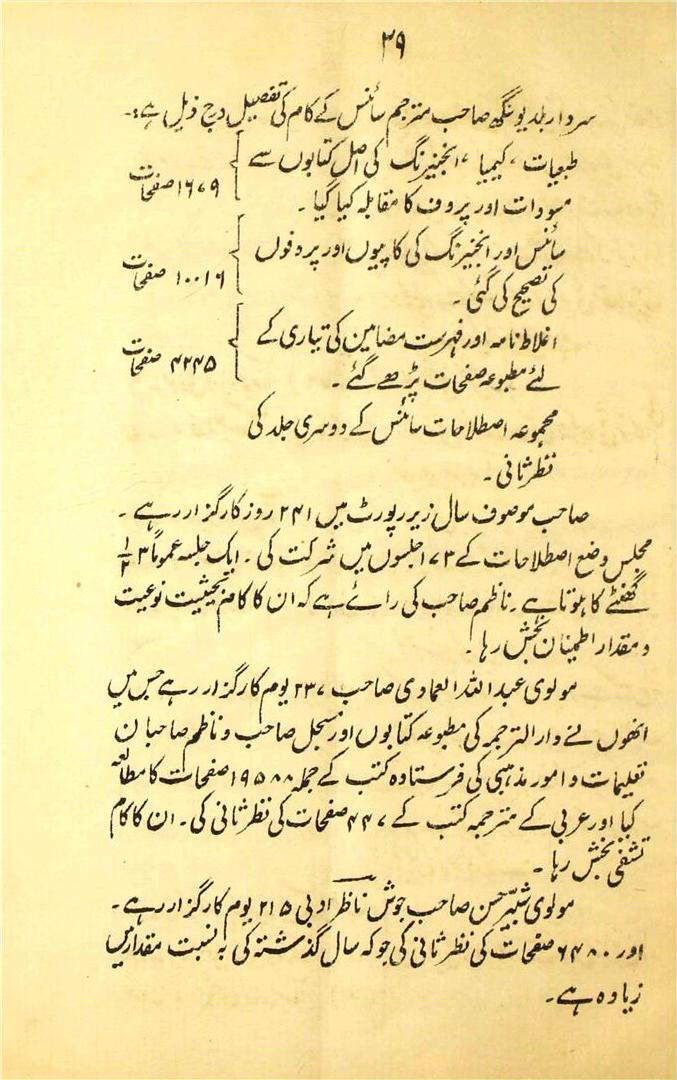 ۳۹
سردار بلدیو سنگھ صاحب مترجم سائنس کے کام کی تفصیل درج ذیل ہے :۔
طبعیات ، کیمیا ، انجنیرنگ کی اصل کتابوں سے
مسودات اور پروف کا مقابلہ کیا گیا ۔
۱۶۷۹ صفحات
سائنس اور انجنیرنگ کی کاپیوں اور پروفوں
کی تصحیح کی گئی ۔
۱۰۰۱۶ صفحات
اغلاط نامہ اور فہرست مضامین کی تیاری کے
لئے مطبوعہ صفحات پڑھے گئے ۔
۴۲۴۵ صفحات
مجموعہ اصطلاحات سائنس کے دوسری جلد کی
نظر ثانی ۔
صاحب موصوف سال زیر رپورٹ میں ۲۴۱ روز کارگزار رہے ۔
مجلس وضع اصطلاحات کے ۱۷۳ جلسوں میں شرکت کی ۔ ایک جلسہ عموماً ۳ ۱/۲
گھنٹے کا ہوتا ہے ۔ ناظم صاحب کی رائے ہے کہ ان کا کام بحیثیت نوعیت
و مقدار اطمینان بخش رہا ۔
مولوی عبد اللہ العمادی صاحب ۲۳۷ یوم کارگزار رہے جس میں
انھوں نے دار الترجمہ کی مطبوعہ کتابوں اور مسجل صاحب و ناظم صاحبان
تعلیمات و امور مذہبی کی فرستادہ کتب کے جملہ ۱۹۵۸۸ صفحات کا مطالعہ
کیا اور عربی کے مترجمہ کتب کے ۴۴۷ صفحات کی نظر ثانی کی ۔ ان کا کام
تشفی بخش رہا ۔
مولوی شبیر حسن صاحب جوش ناظر ادبی ۲۱۵ یوم کارگزار رہے ۔
اور ۶۴۸۰ صفحات کی نظر ثانی کی جو کہ سال گذشتہ کی بہ نسبت مقدار میں
زیادہ ہے ۔